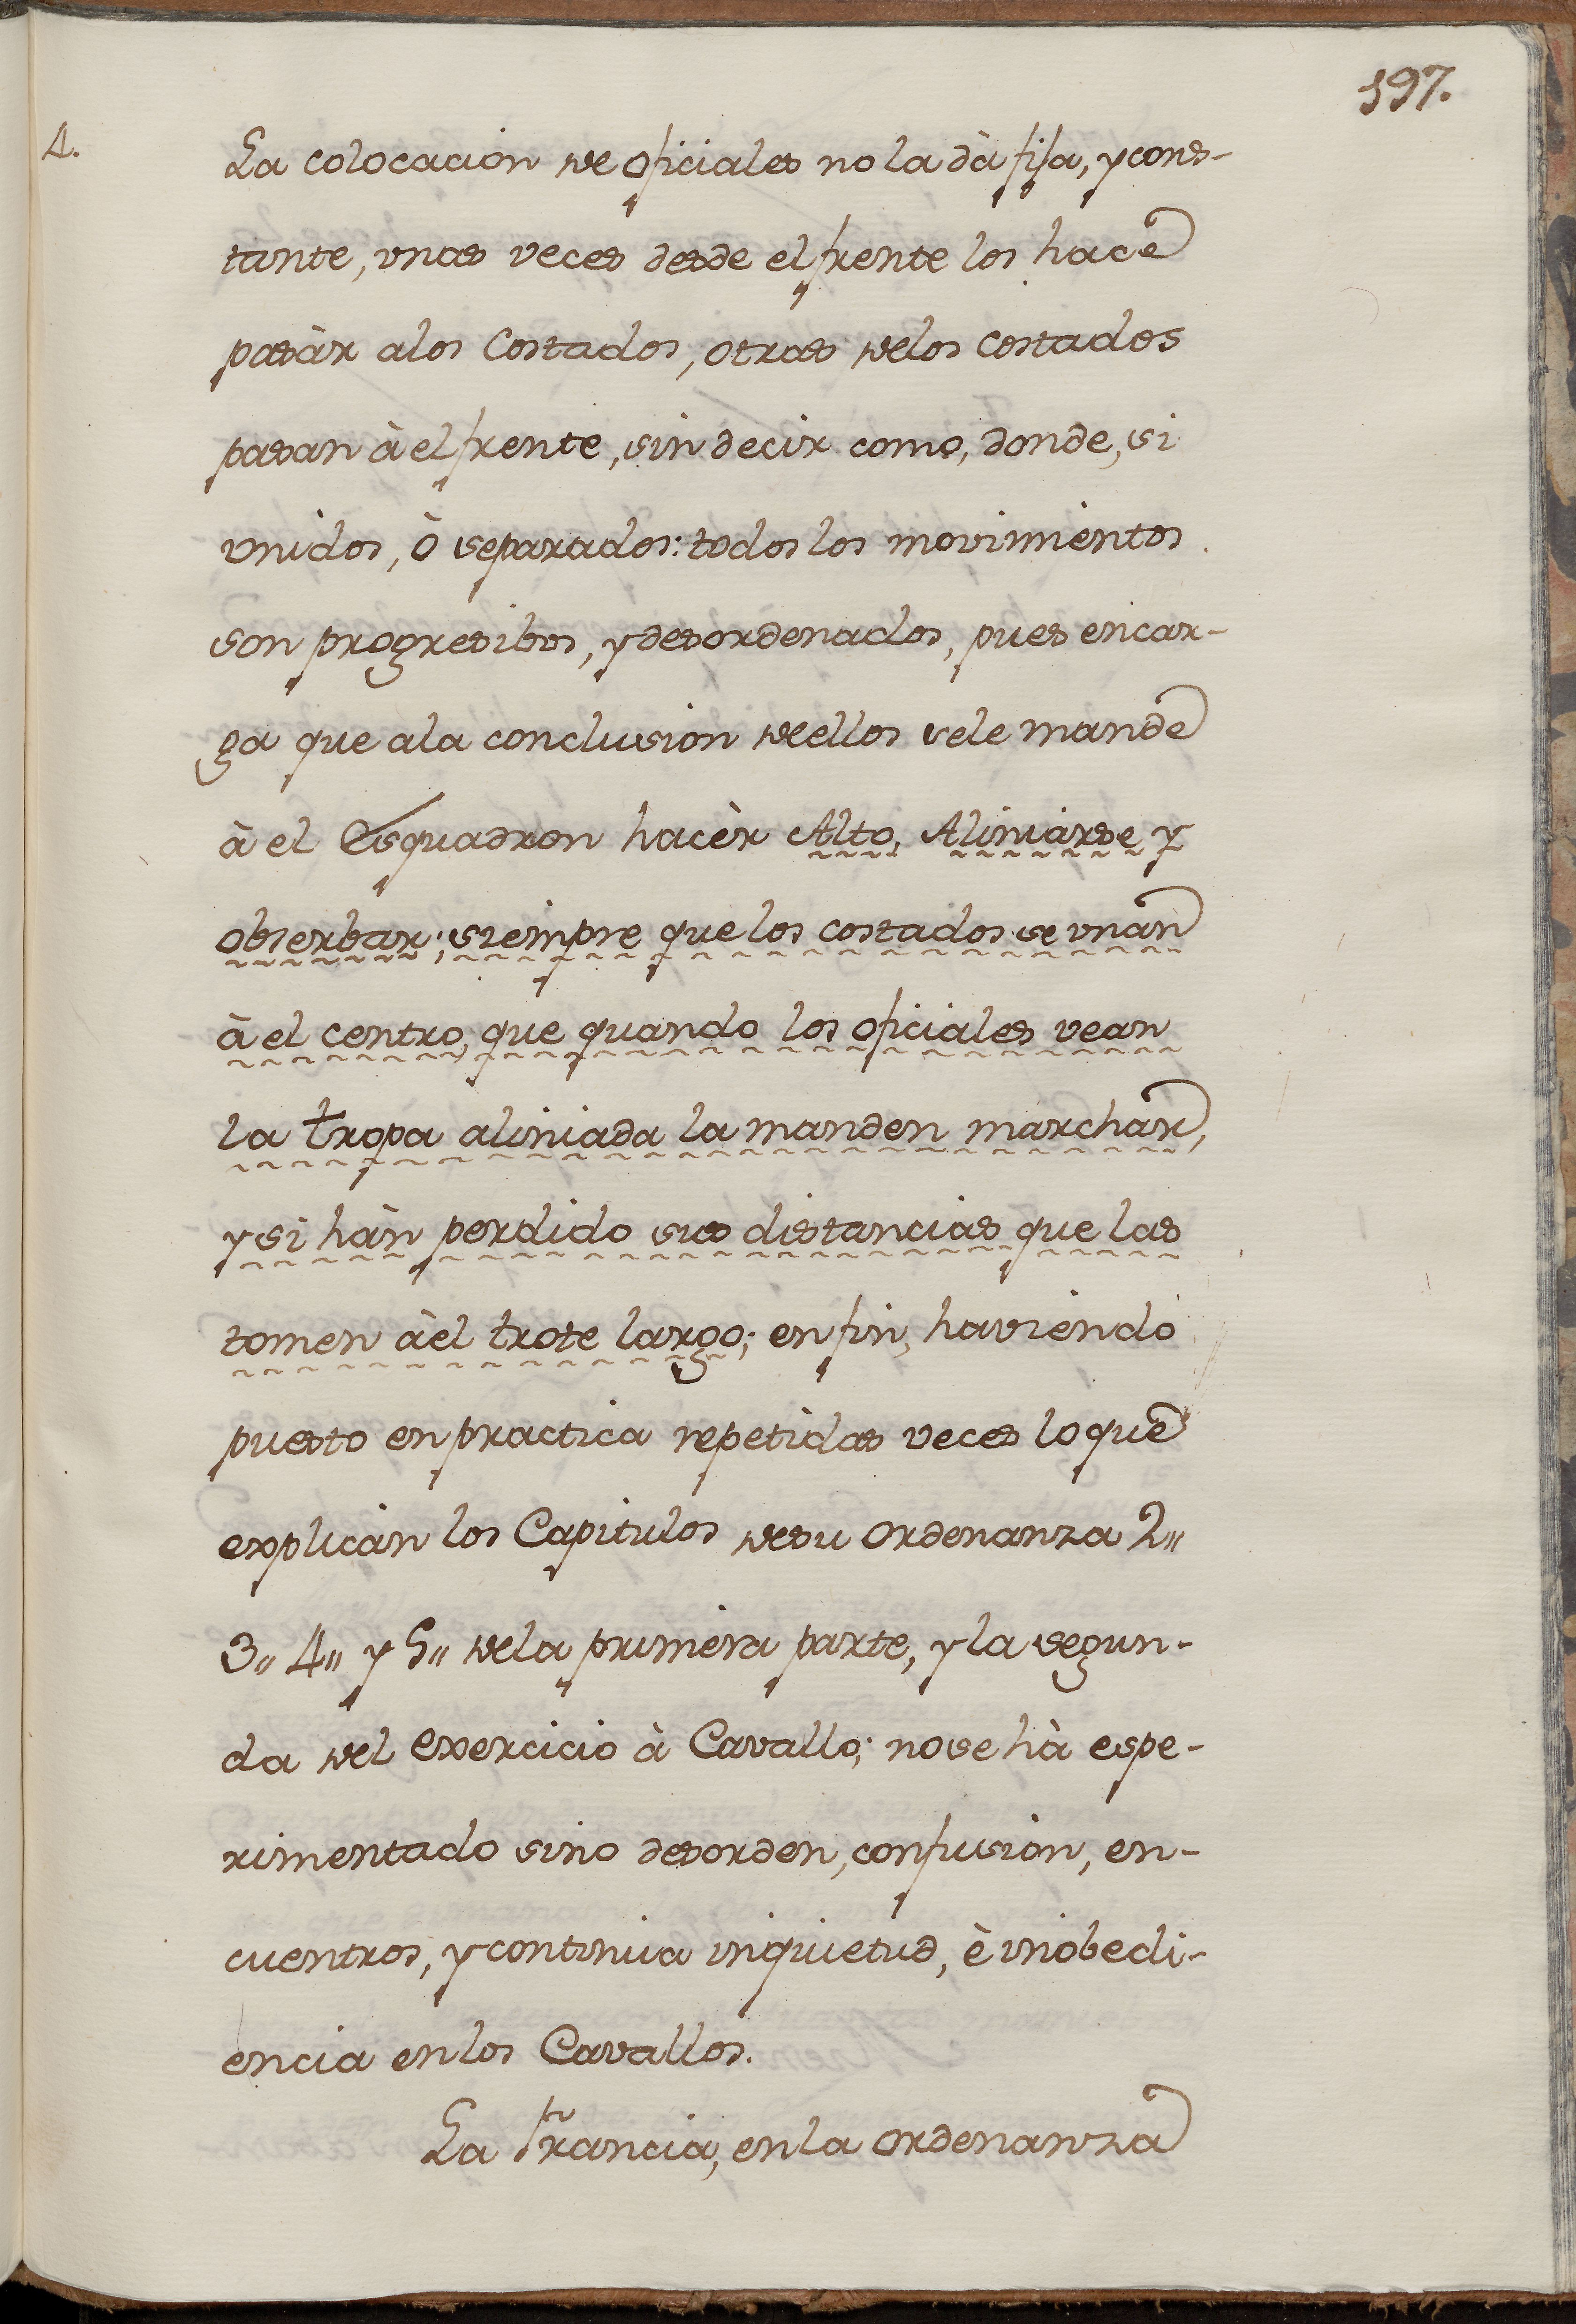 197.
4.
La colocacion de oficiales no la dà fisa, y cons-
tante, vnas veces desde el frente los hace
pasàr a los Costados, otras de los Costados
pasan à el frente, sin decir como, donde, si
vnidos, ò separados: todos los movimientos
son progresibos, y desordenados, pues encar-
ga que a la conclusion de ellos se le mande
à el Esquadron hacèr Alto, Aliniarse, y
obserbar; siempre que los costados se vnan
à el centro, que quando los oficiales vean
la tropa aliniada la manden marchar,
y si hàn perdido sus distancias que las
tomen à el trote largo; en fin, haviendo
puesto en practica repetidas veces lo que
explican los Capitulos de su ordenanza 2"
3" 4" y 5" de la primera parte, y la segun-
da del exercicio à Cavallo; no se hà espe-
rimentado sino desorden, confusion, en-
cuentros, y continua inquietud, è inobedi-
encia en los Cavallos.
La francia, en la ordenanza